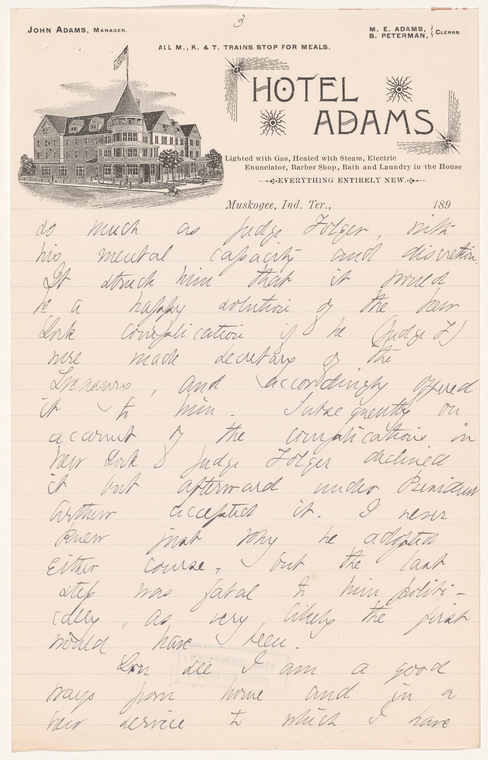 3
JOHN ADAMS, MANAGER.
M. E. ADAMS,
B. PETERMAN, } CLERKS
ALL M., K. & T. TRAINS STOP FOR MEALS.
HOTEL
ADAMS
Lighted with Gas, Heated with Steam, Electric
Enunciator, Barber Shop, Bath and Laundry in the House
EVERYTHING ENTIRELY NEW.
Muskogee, Ind. Ter., 189
so much as Judge Folger, with
his mental capacity and discretion.
It struck him that it would
be a happy solution of the New
York complication if he (Judge F)
were made secretary of the
Treasury, and accordingly offered
it to him. Subsequently on
account of the complications in
New York Judge Folger declined
it but afterward under President
Arthur accepted it. I never
knew just why he adopted
either course, but the last
step was fatal to him politi-
cally, as very likely the first
would have been.
You see I am a good
ways from home and in a
new service to which I have